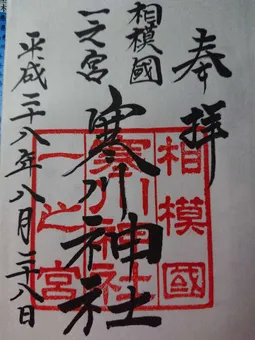 奉拝
相模國
一之宮
寒川神社
平成二十八年八月二十八日
相模國
寒川神社
一之宮